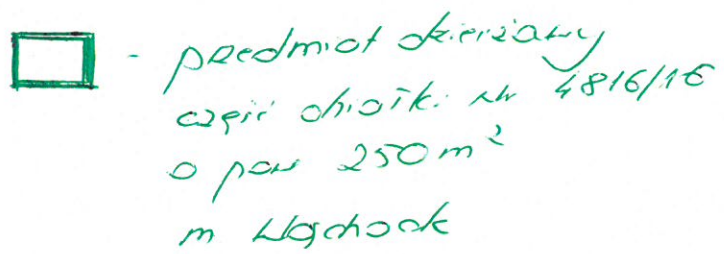 - przedmiot dzierżawy
część działki nr 4816/16
o pow 250 m²
m Wąchock